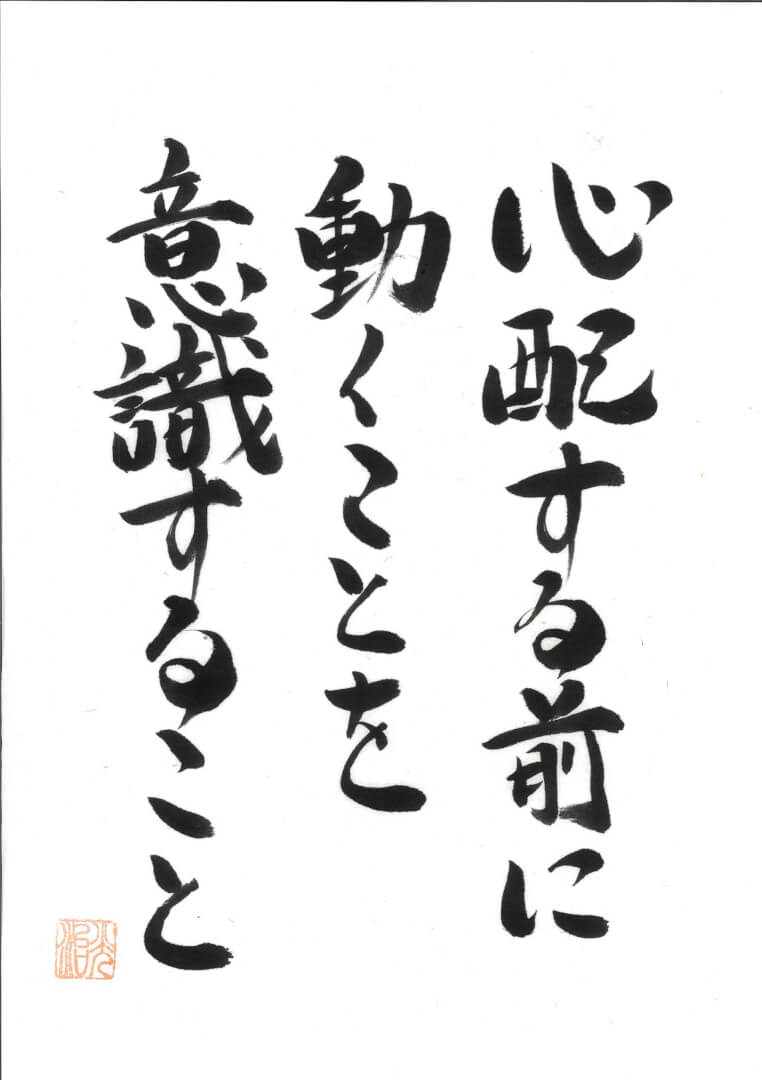 心配する前に
動くことを
意識すること